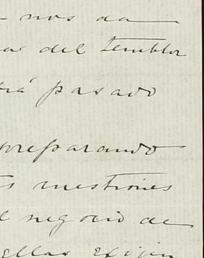 nos da
del temblor
pasado
preparando
mestiones
negocio de
ellas exijen